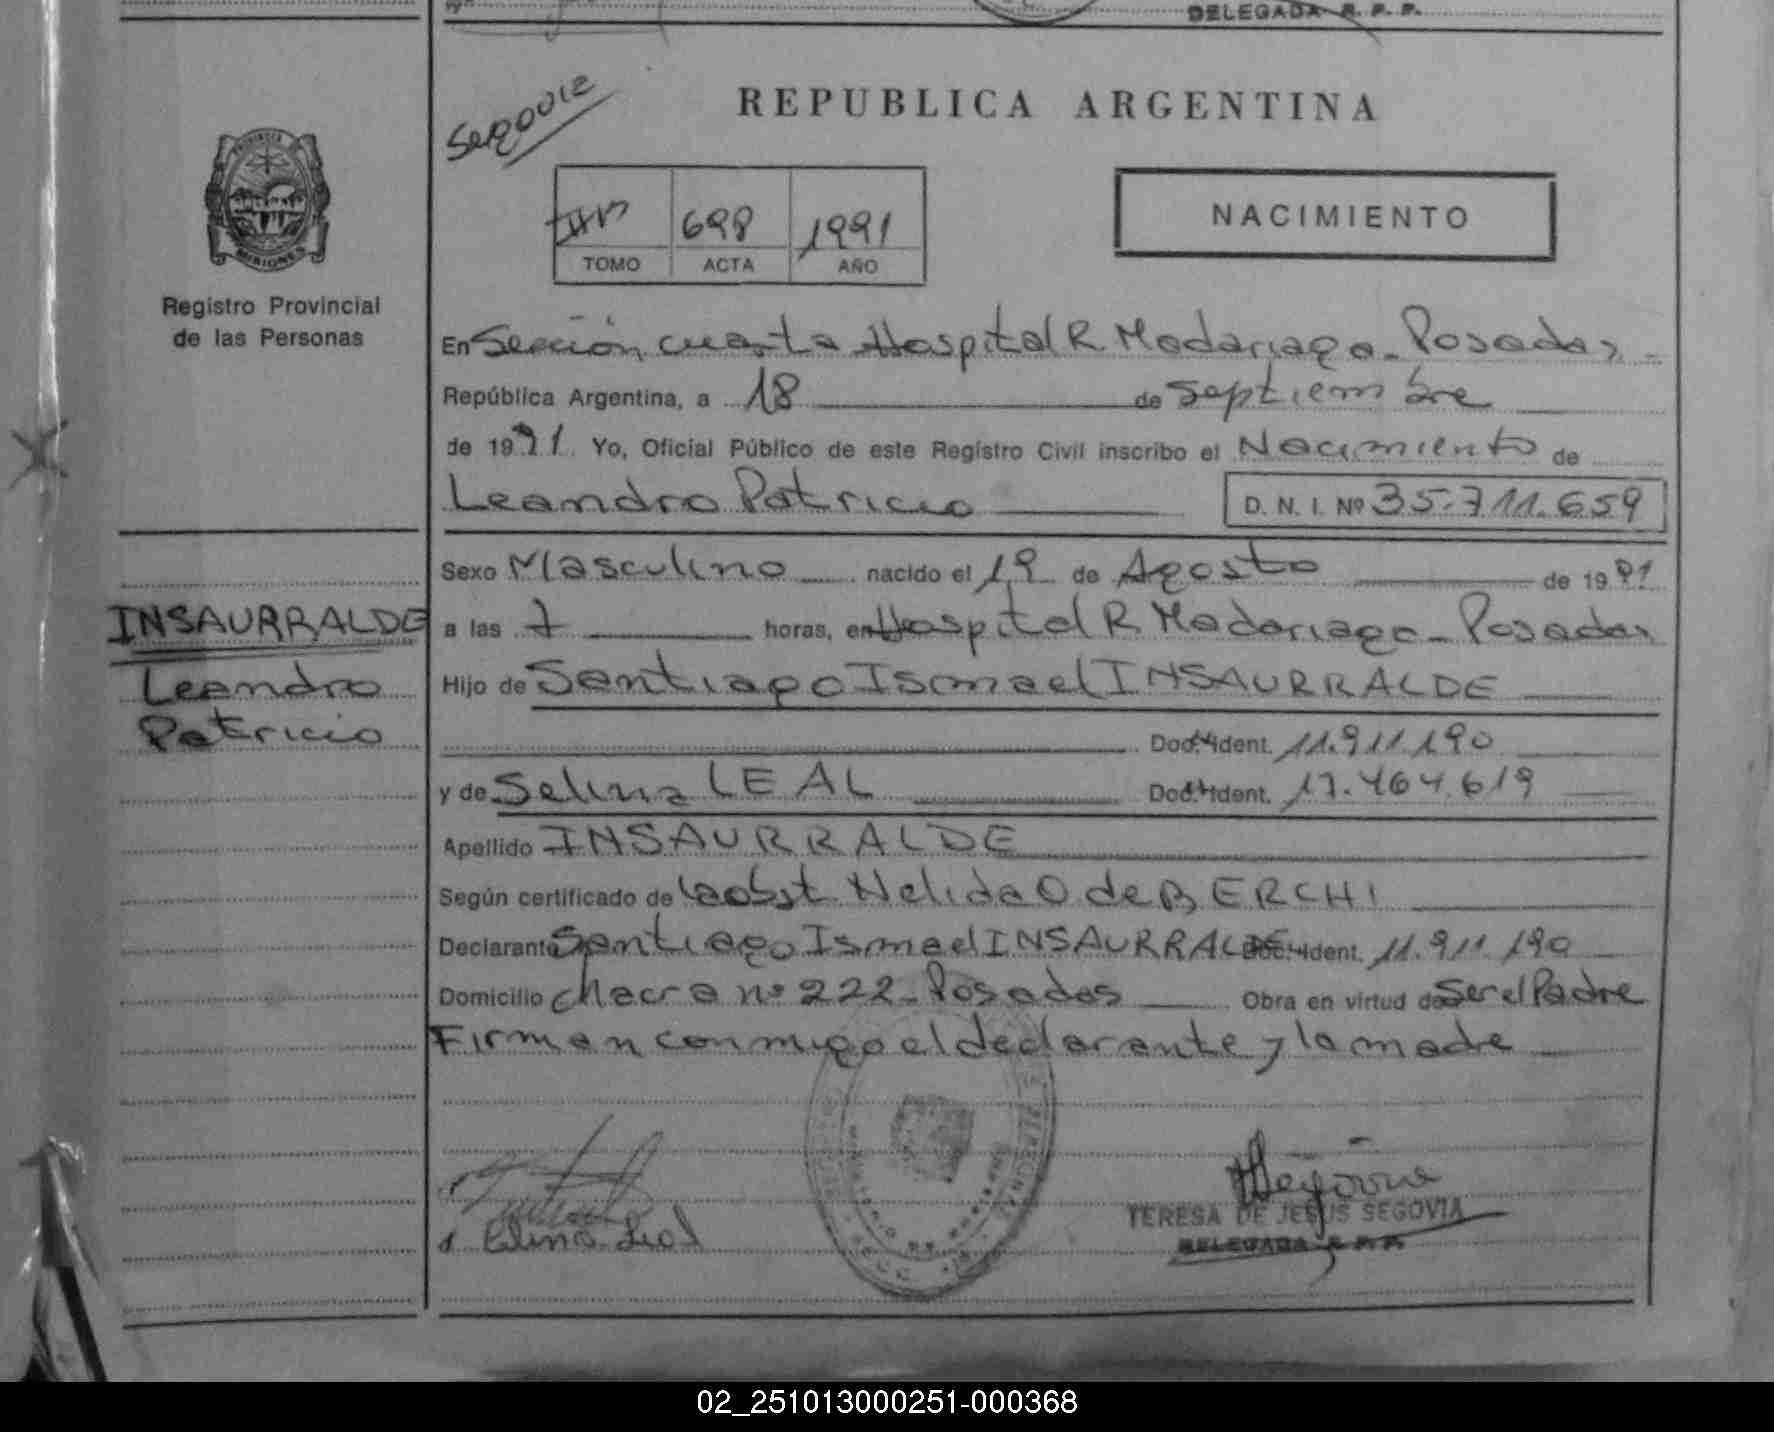 DELEGADA R. P. P.
REPUBLICA ARGENTINA
NACIMIENTO
698 1991
TOMO ACTA AÑO
PROVINCIA
MISIONES
Registro Provincial
de las Personas
En Sección cuarta Hospital R Madariaga - Posadas -
República Argentina, a 18 de Septiembre
de 1991. Yo, Oficial Público de este Registro Civil inscribo el Nacimiento de
Leandro Patricio D. N. I. Nº 35.711.659
Sexo Masculino nacido el 19 de Agosto de 1991
a las 7 horas, en Hospital R Madariaga - Posadas
Hijo de Santiago Ismael INSAURRALDE
Doc. Ident. 11.911.190
y de Selina LEAL Doc. Ident. 17.464.619
Apellido INSAURRALDE
Según certificado de la obst. Nelida O de BERCHI
Declarante Santiago Ismael INSAURRALDE Doc. Ident. 11.911.190
Domicilio Chacra nº 222 - Posadas Obra en virtud de Ser el Padre
Firman conmigo el declarante y la madre
INSAURRALDE
Leandro
Patricio
Leal
TERESA DE JESUS SEGOVIA
DELEGADA R. P. P.
02_251013000251-000368